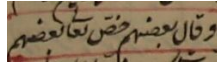 وقال بعضهم خصّ تعالى بعضهم